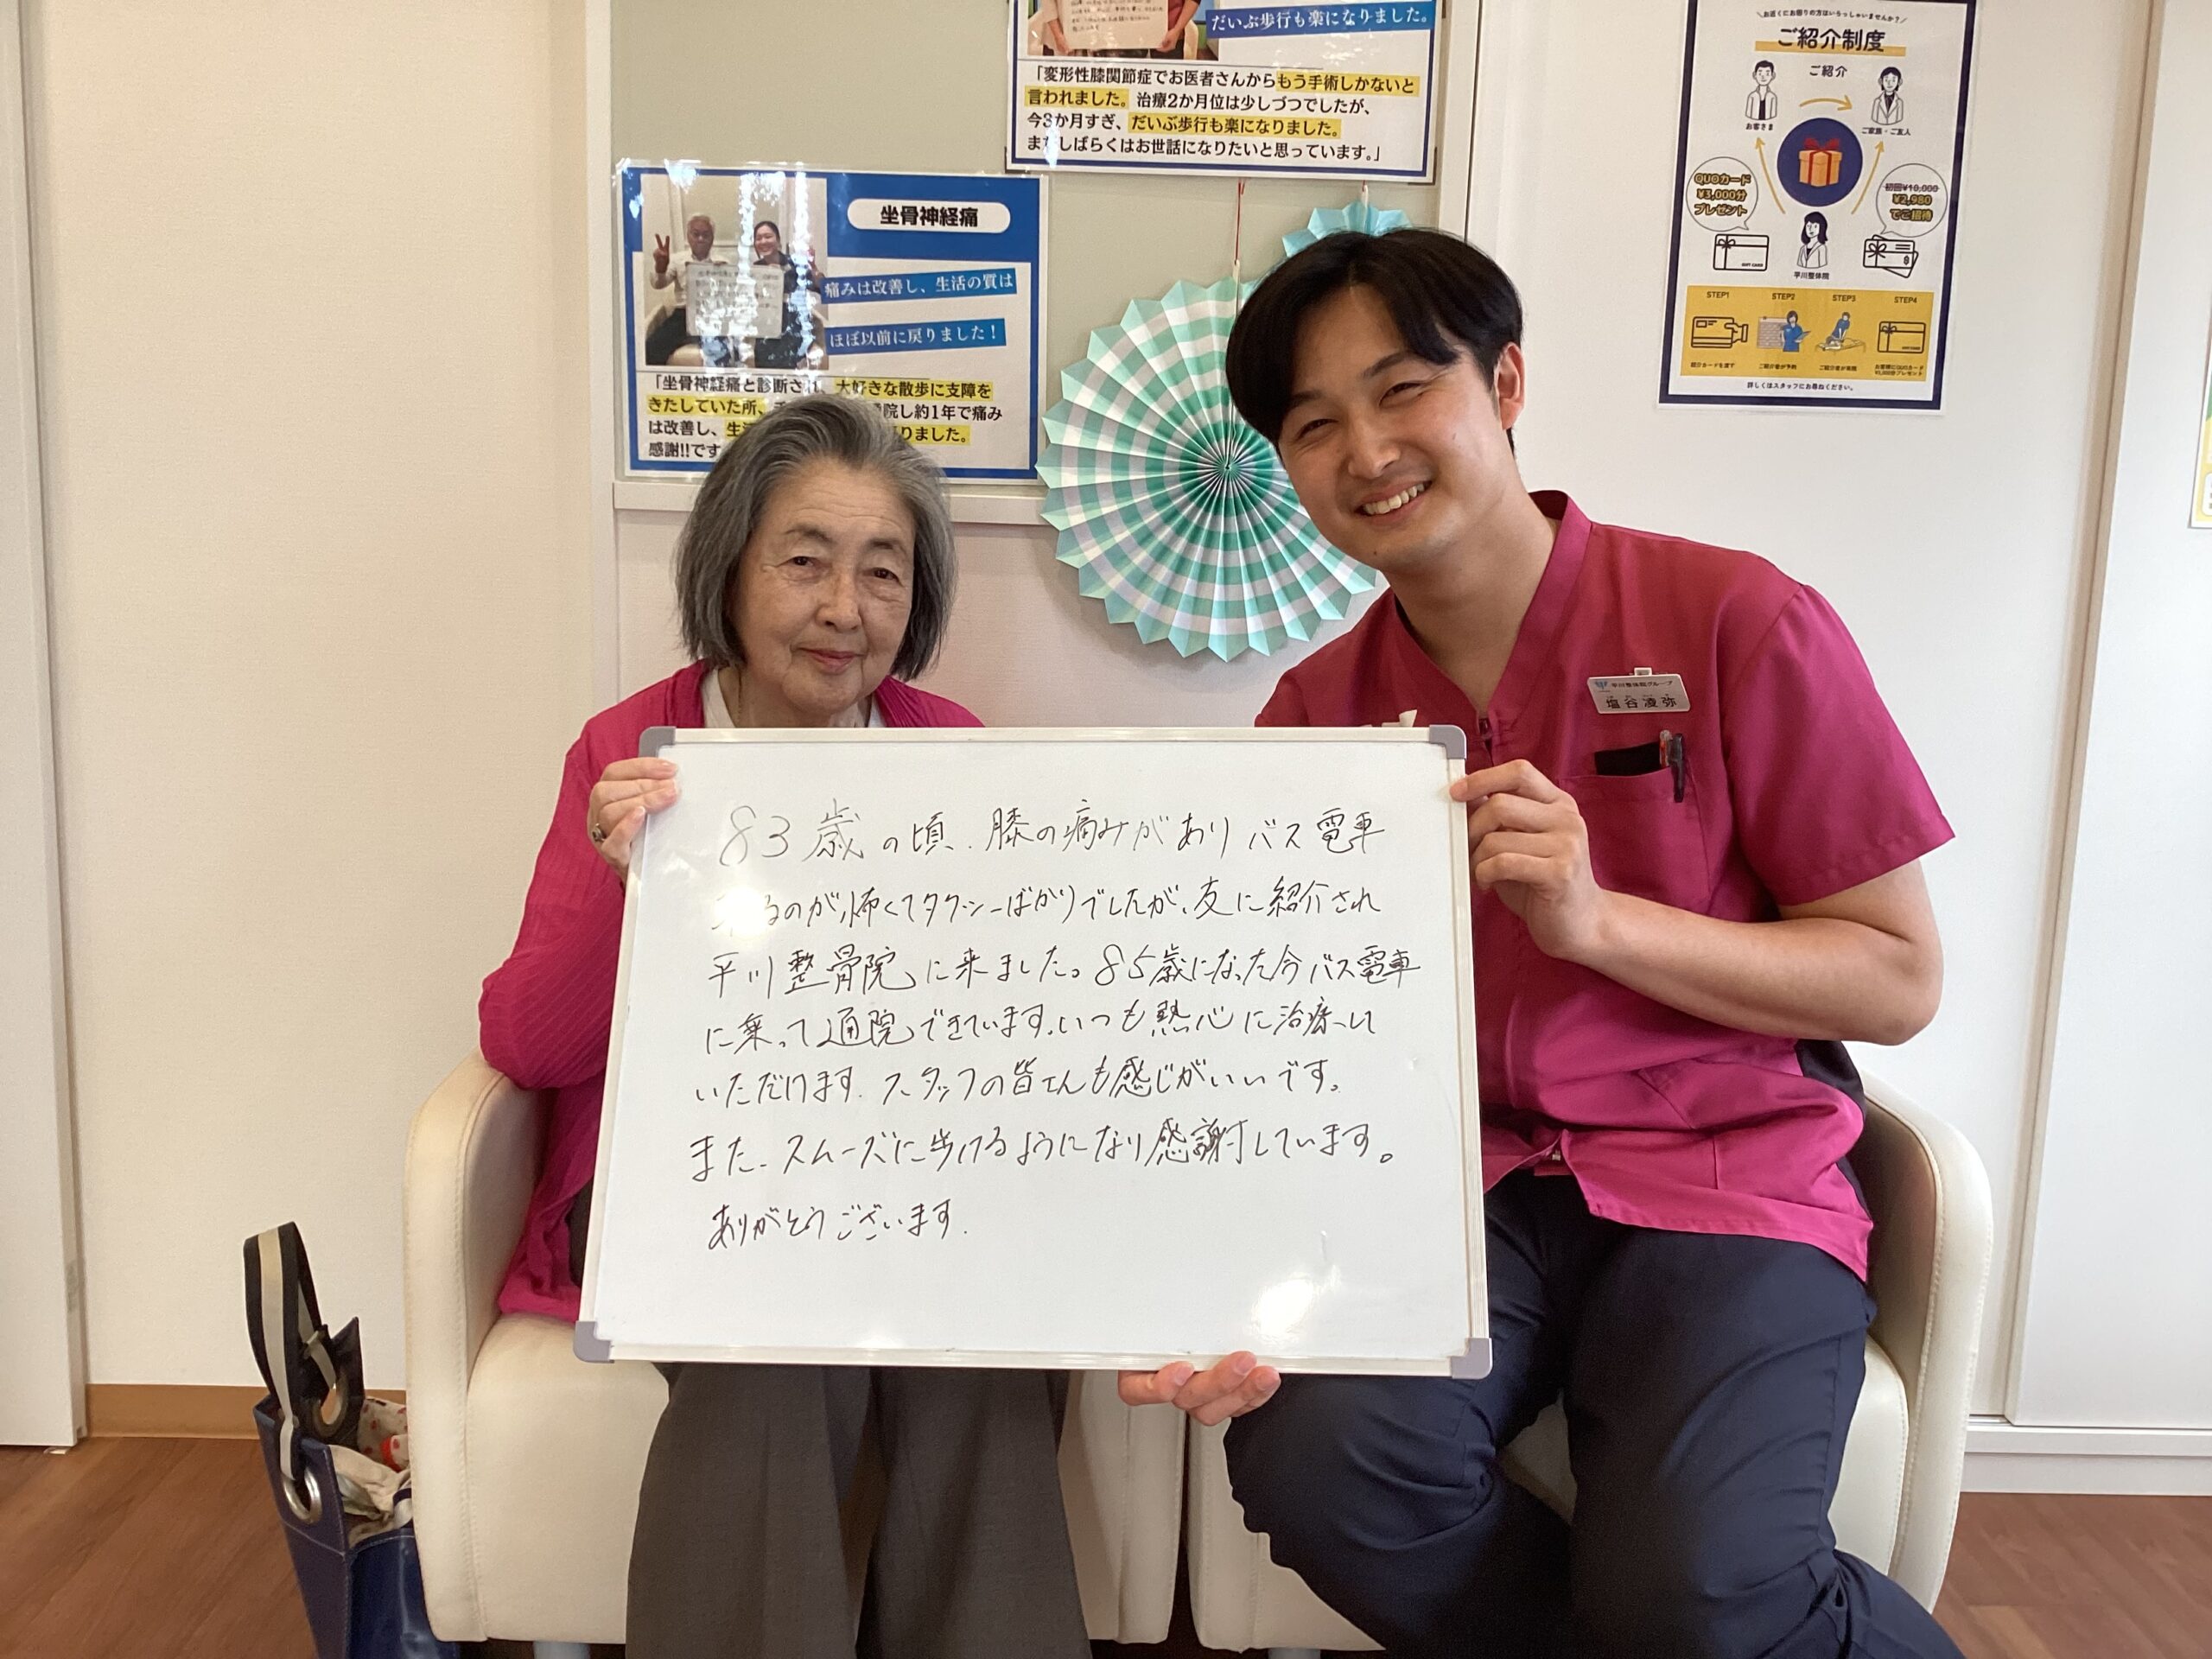 だいぶ歩行も楽になりました。
「変形性膝関節症でお医者さんからもう手術しかないと
言われました。治療2か月位は少しづつでしたが、
今3か月すぎ、だいぶ歩行も楽になりました。
またしばらくはお世話になりたいと思っています。」
坐骨神経痛
痛みは改善し、生活の質は
ほぼ以前に戻りました!
「坐骨神経痛と診断され 大好きな散歩に支障を
きたしていた所、 院し約1年で痛み
は改善し、生活 りました。
感謝!!です
＼お近くにお困りの方はいらっしゃいませんか?／
ご紹介制度
ご紹介
お客さま
ご家族・ご友人
QUOカード
¥3,000分
プレゼント
初回¥10,000
¥2,980
でご招待
GIFT CARD
平川整体院
STEP1 STEP2 STEP3 STEP4
紹介カードを渡す ご紹介者が予約 ご紹介者が来院
詳しくはスタッフにお尋ねください。
平川整体院グループ
塩谷凌弥
83歳の頃、膝の痛みがありバス電車
るのが怖くてタクシーばかりでしたが、友に紹介され
平川整骨院に来ました。85歳になった今バス電車
に乗って通院できています。いつも熱心に治療して
いただけます。スタッフの皆さんも感じがいいです。
また、スムーズに歩けるようになり感謝しています。
ありがとうございます。